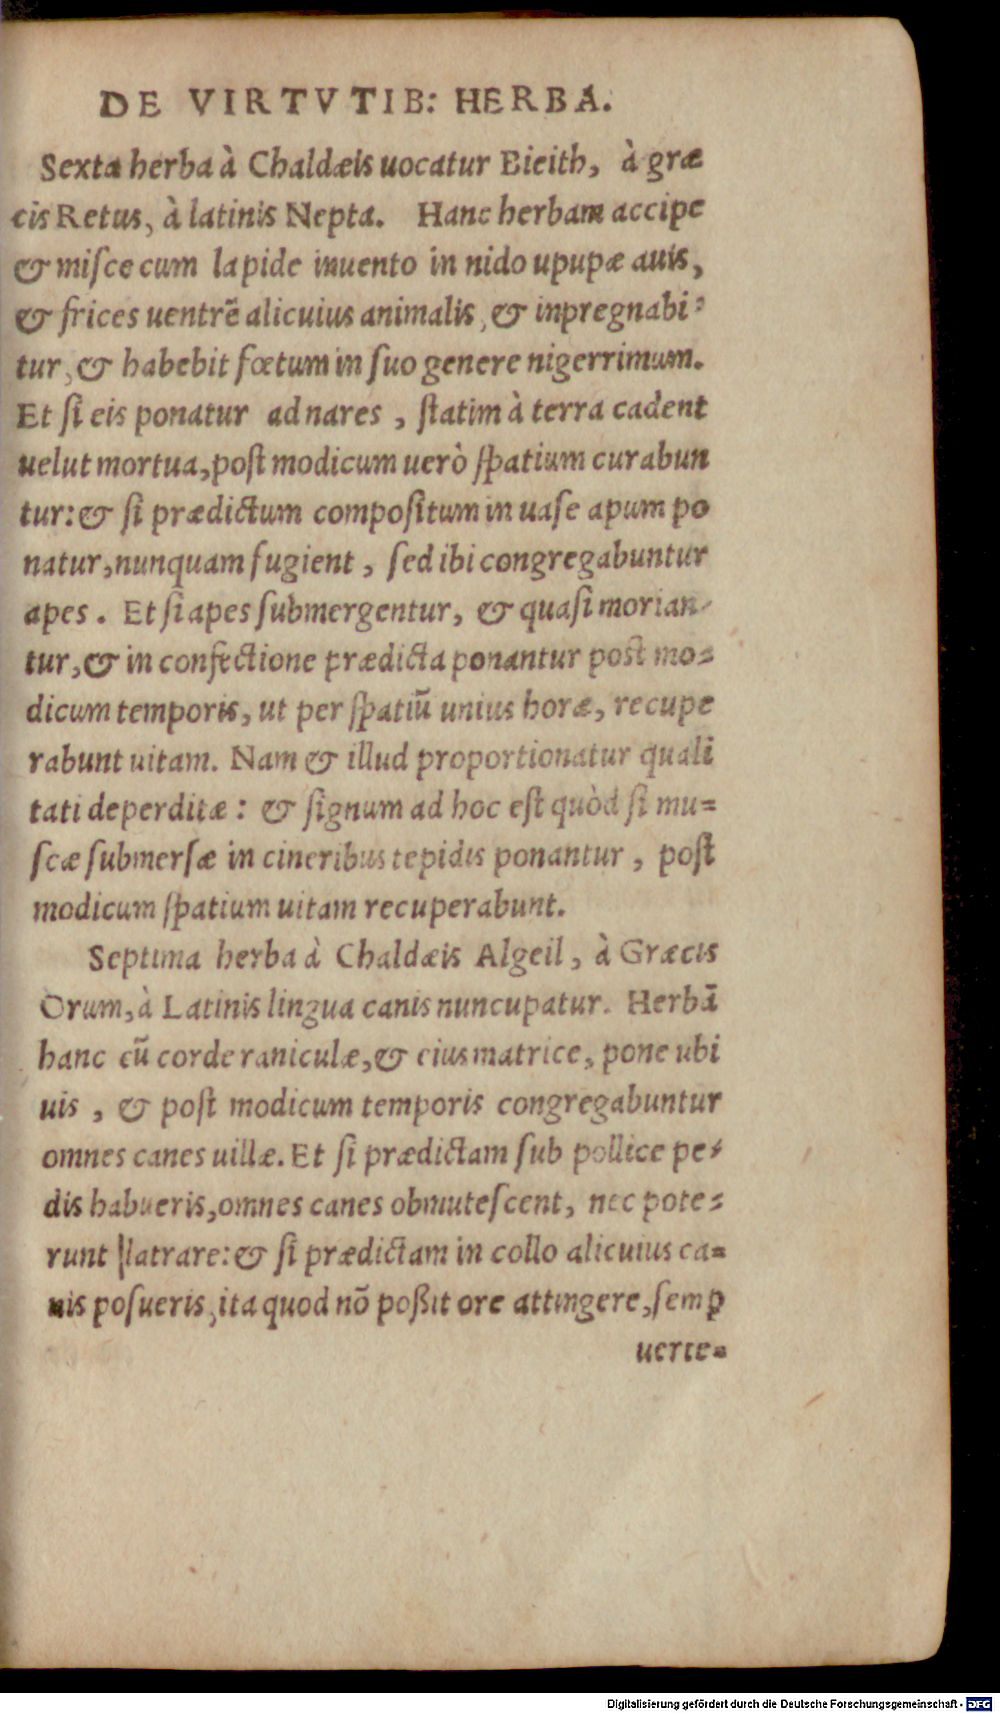 DE VIRTVTIB: HERBA.
Sexta herba à Chaldæis uocatur Bieith, à græ
cis Retus, à latinis Nepta. Hanc herbam accipe
& misce cum lapide inuento in nido upupæ auis,
& frices uentrē alicuius animalis, & inpregnabi-
tur, & habebit fœtum in suo genere nigerrimum.
Et si eis ponatur ad nares, statim à terra cadent
uelut mortua, post modicum uerò spatium curabun
tur: & si prædictum compositum in uase apum po
natur, nunquam fugient, sed ibi congregabuntur
apes. Et si apes submergentur, & quasi morian-
tur, & in confectione prædicta ponantur post mo-
dicum temporis, ut per spatiū unius horæ, recupe
rabunt uitam. Nam & illud proportionatur quali
tati deperditæ: & signum ad hoc est quòd si mu-
scæ submersæ in cineribus tepidis ponantur, post
modicum spatium uitam recuperabunt.
Septima herba à Chaldæis Algeil, à Græcis
Orum, à Latinis lingua canis nuncupatur. Herbā
hanc cū corde raniculæ, & eius matrice, pone ubi
uis, & post modicum temporis congregabuntur
omnes canes uillæ. Et si prædictam sub pollice pe-
dis habueris, omnes canes obmutescent, nec pote-
runt latrare: & si prædictam in collo alicuius ca-
nis posueris, ita quod nō poßit ore attingere, semꝑ
uerte-
Digitalisierung gefördert durch die Deutsche Forschungsgemeinschaft - DFG